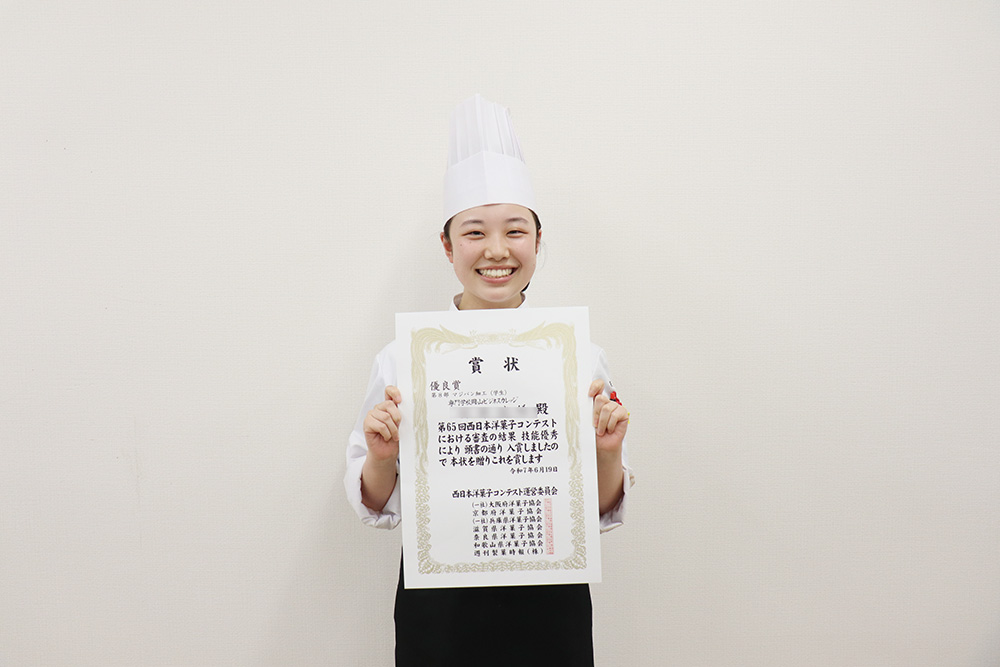 賞状
優良賞
第8部 マジパン細工（学生）
専門学校岡山ビジネスカレッジ
殿
第65回西日本洋菓子コンテスト
における審査の結果 技能優秀
により 頭書の通り 入賞しましたの
で 本状を贈りこれを賞します
令和7年6月19日
西日本洋菓子コンテスト運営委員会
(一社)大阪府洋菓子協会
京都府洋菓子協会
(一社)兵庫県洋菓子協会
滋賀県洋菓子協会
奈良県洋菓子協会
和歌山県洋菓子協会
週刊製菓時報(株)